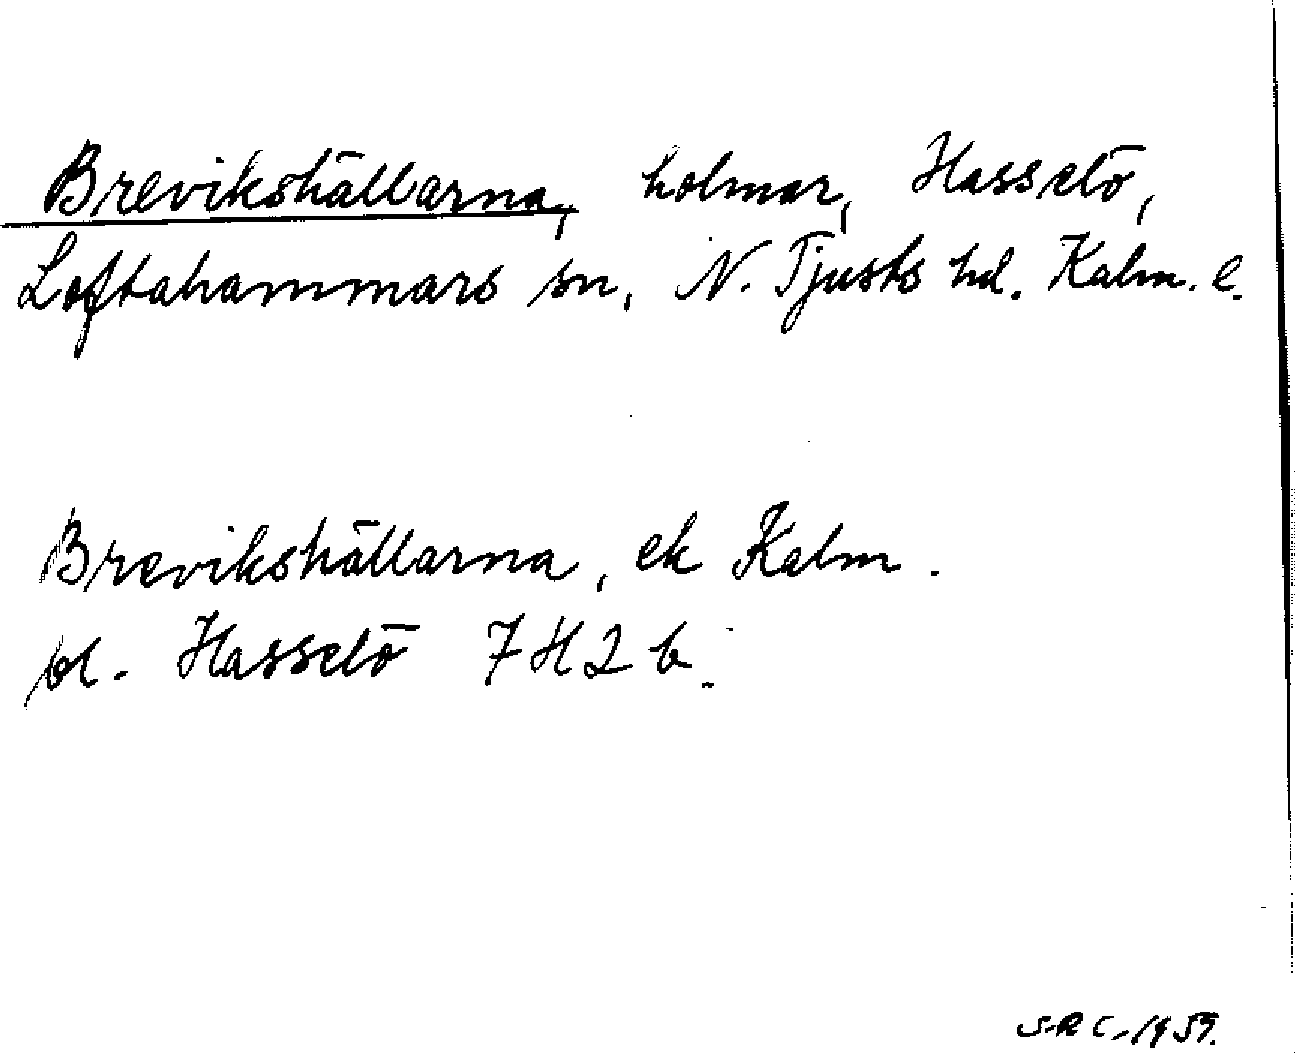 Brevikshällarna, holmar, Hasselö,
Loftahammars sn, N. Tjusts hd. Kalm. l.
Brevikshällarna, ek Kalm.
bl. Hasselö 7H2b.
S-R C-1959.